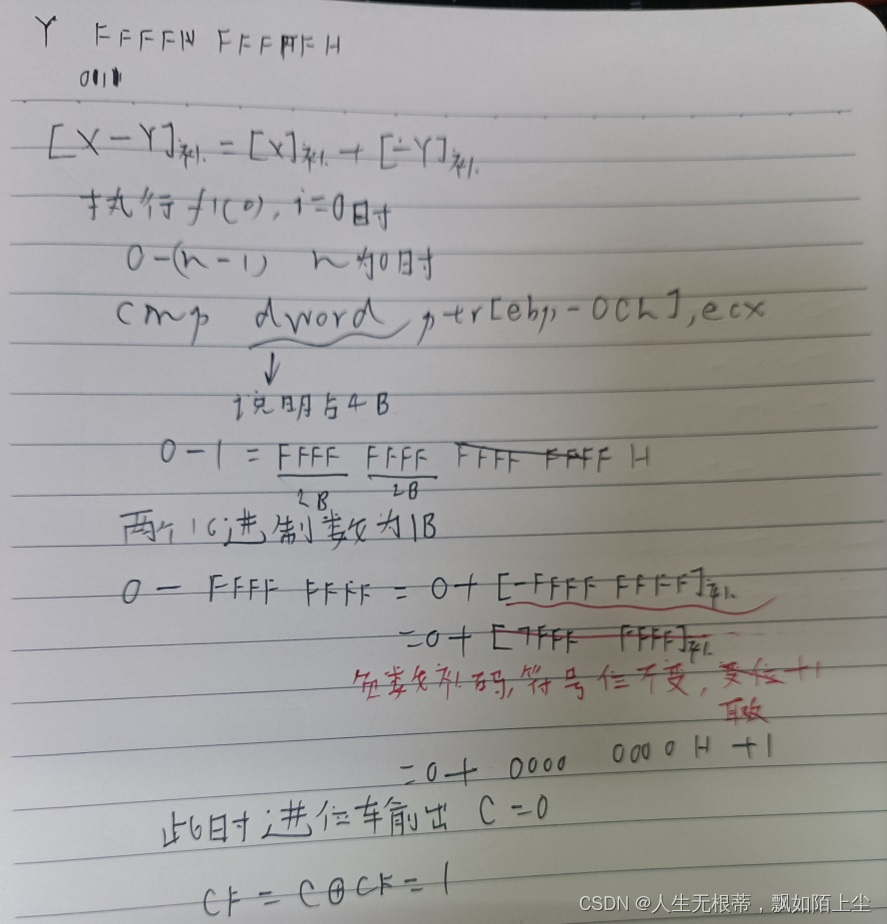 Y FFFFN FFFFFFH
0111
[X-Y]补 = [X]补 + [-Y]补
执行f1(0), i=0时
0-(n-1) n为0时
cmp dword ptr[ebp-0Ch],ecx
↓
说明占4B
0-1 = FFFF FFFF FFFF FFFF H
2B 2B
两个16进制数为1B
0 - FFFF FFFF = 0+[-FFFF FFFF]补
=0+[7FFF FFFF]补
负数补码,符号位不变,变位+1
取
=0+ 0000 0000H +1
此时进位车前出 C=0
CF = C⊕CF = 1
CSDN @人生无根蒂,飘如陌上尘